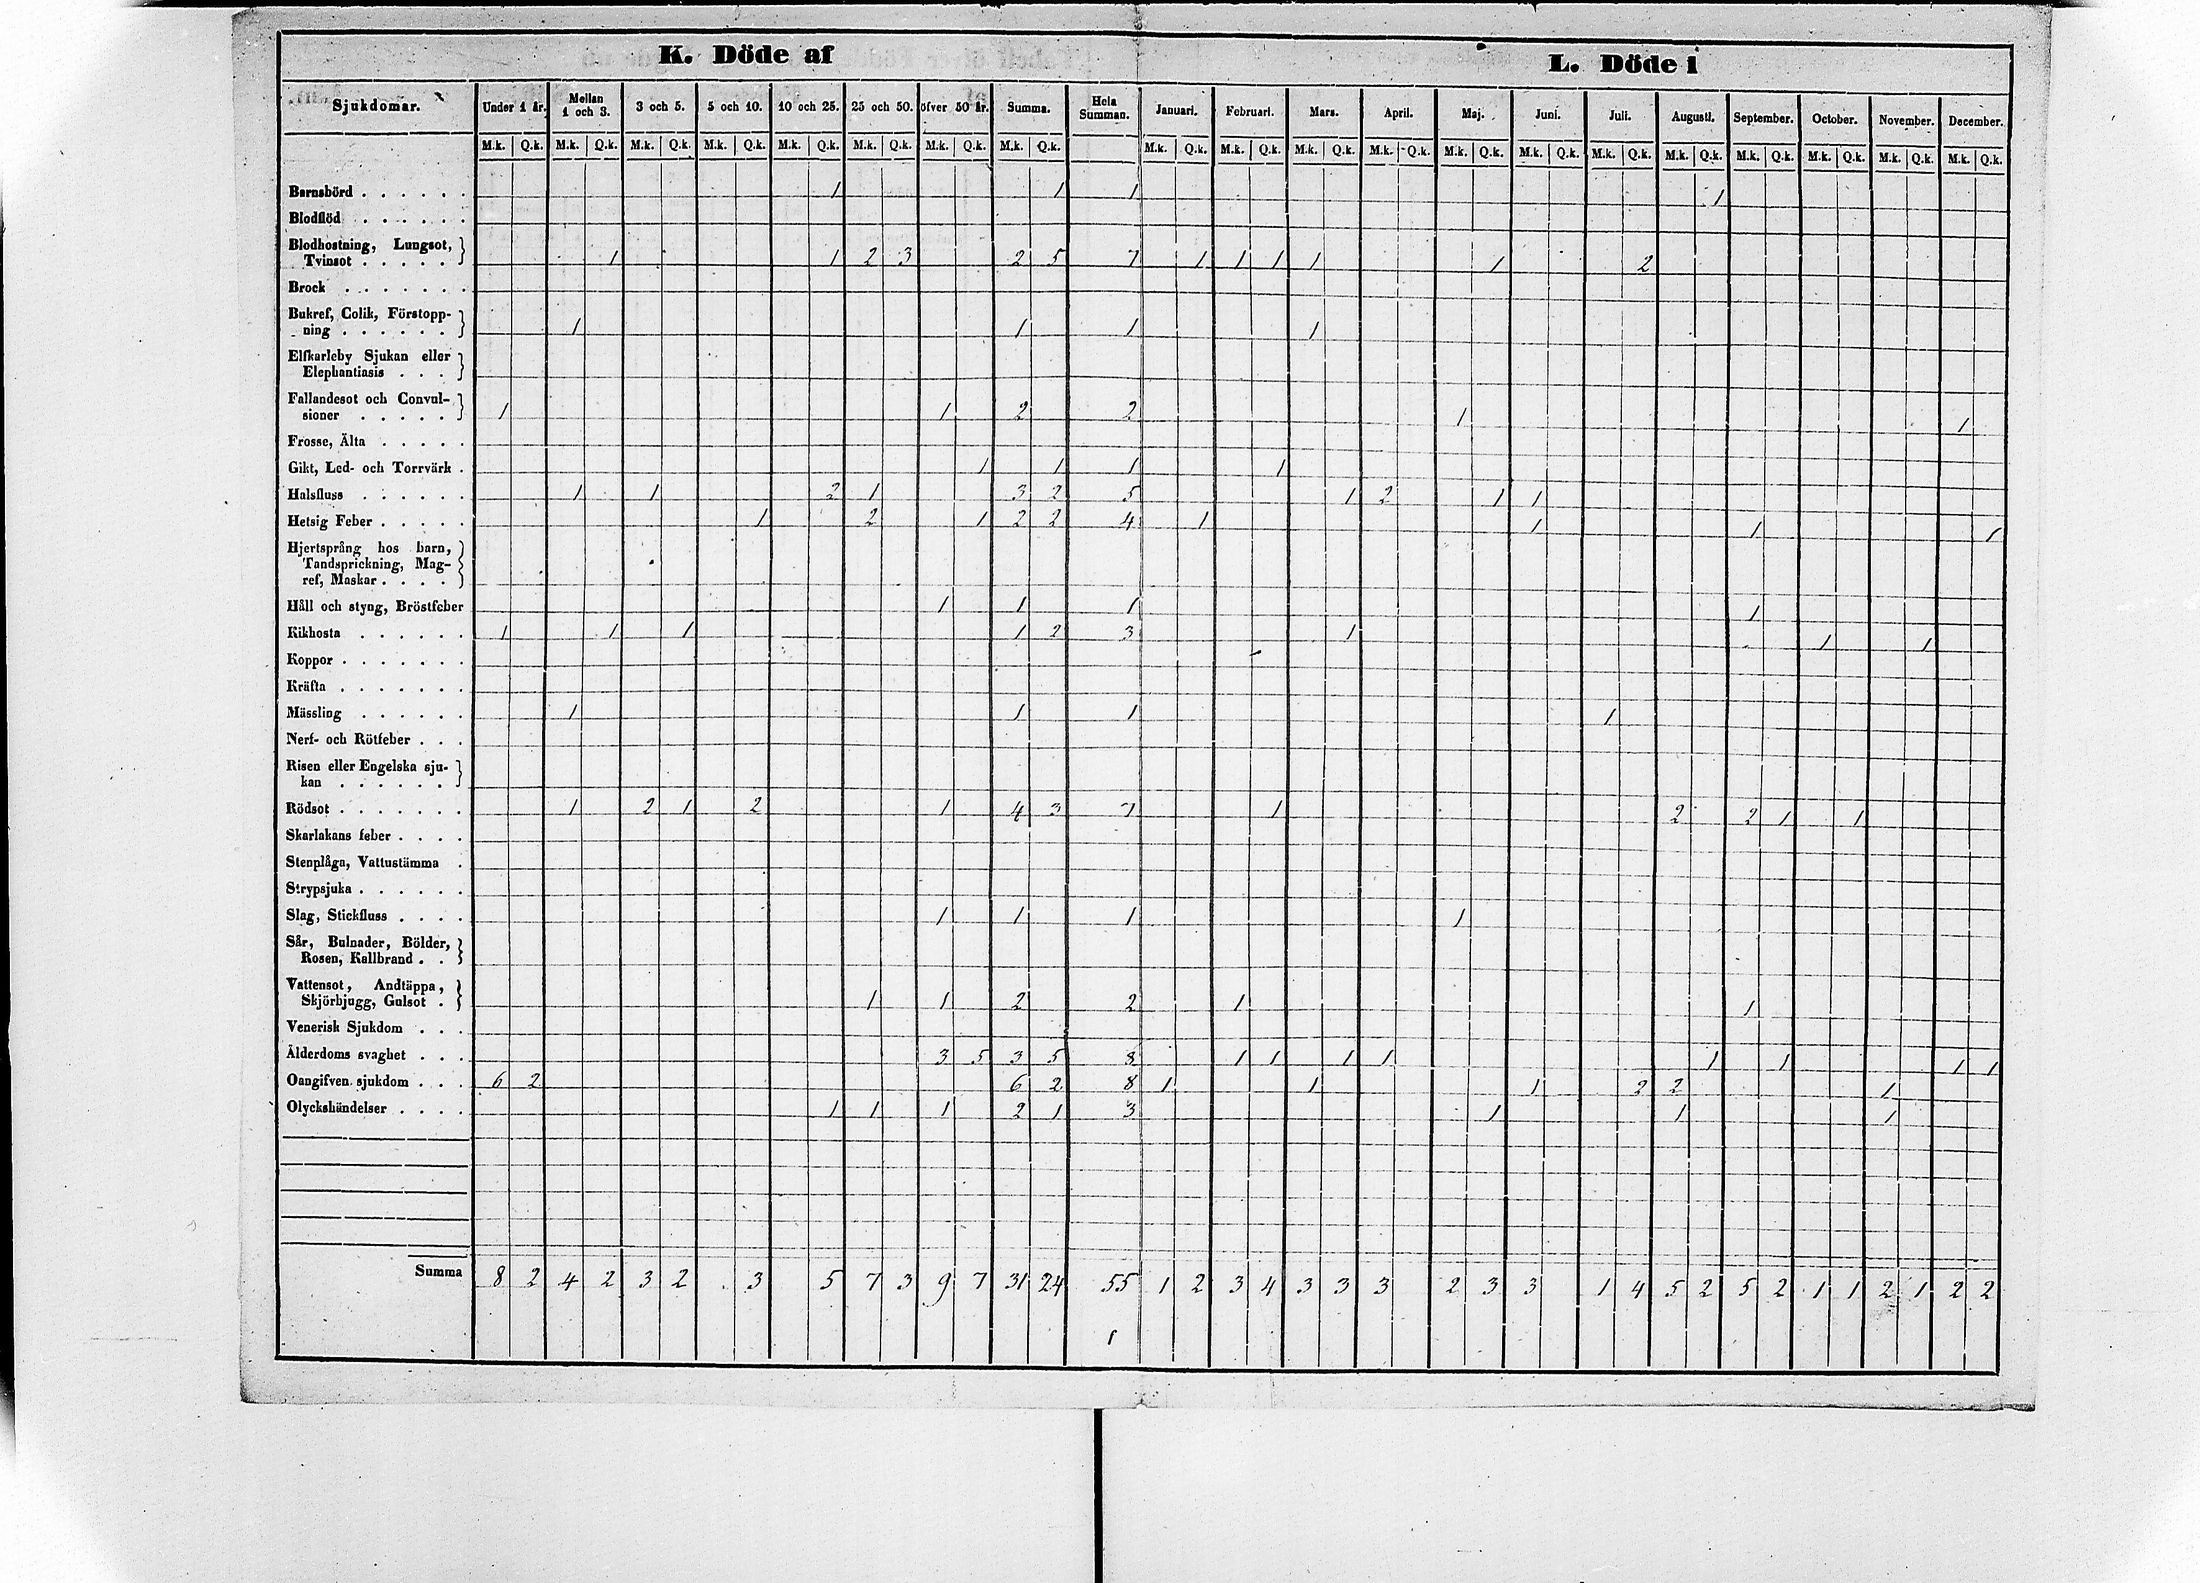 K. Döde af L. Döde i
Sjukdomar. Under 1 år. Mellan 1 och 3. 3 och 5. 5 och 10. 10 och 25. 25 och 50. öfver 50 år. Summa. Hela Summan. Januari. Februari. Mars. April. Maj. Juni. Juli. Augusti. September. October. November. December.
M.k. Q.k. M.k. Q.k. M.k. Q.k. M.k. Q.k. M.k. Q.k. M.k. Q.k. M.k. Q.k. M.k. Q.k. M.k. Q.k. M.k. Q.k. M.k. Q.k. M.k. Q.k. M.k. Q.k. M.k. Q.k. M.k. Q.k. M.k. Q.k. M.k. Q.k. M.k. Q.k. M.k. Q.k. M.k. Q.k.
Barnsbörd . . . . . . 1 1 1 1
Blodflöd . . . . . .
Blodhostning, Lungsot,
Tvinsot . . . . . 1 1 2 3 2 5 7 1 1 1 1 1 2
Brock . . . . . . .
Bukref, Colik, Förstopp-
ning . . . . . . 1 1 1 1
Elfkarleby Sjukan eller
Elephantiasis . . .
Fallandesot och Convul-
sioner . . . . . 1 1 2 2 1 1
Frosse, Älta . . . . .
Gikt, Led- och Torrvärk . 1 1 1 1
Halsfluss . . . . . . 1 1 2 1 3 2 5 1 2 1 1
Hetsig Feber . . . . . 1 2 1 2 2 4 1 1 1 1
Hjertsprång hos barn,
Tandsprickning, Mag-
ref, Maskar . . . .
Håll och styng, Bröstfeber 1 1 1 1
Kikhosta . . . . . . 1 1 1 1 2 3 1 1 1
Koppor . . . . . . .
Kräfta . . . . . . .
Mässling . . . . . . 1 1 1 1
Nerf- och Rötfeber . . .
Risen eller Engelska sju-
kan . . . . . .
Rödsot . . . . . . . 1 2 1 2 1 4 3 7 1 2 2 1 1
Skarlakans feber . . . .
Stenplåga, Vattustämma .
Strypsjuka . . . . . .
Slag, Stickfluss . . . . 1 1 1 1
Sår, Bulnader, Bölder,
Rosen, Kallbrand . .
Vattensot, Andtäppa,
Skjörbjugg, Gulsot . 1 1 2 2 1 1
Venerisk Sjukdom . . .
Ålderdoms svaghet . . . 3 5 3 5 8 1 1 1 1 1 1 1 1
Oangifven sjukdom . . . 6 2 6 2 8 1 1 1 2 2 1
Olyckshändelser . . . . 1 1 1 2 1 3 1 1 1
Summa 8 2 4 2 3 2 3 5 7 3 9 7 31 24 55 1 2 3 4 3 3 3 2 3 3 1 4 5 2 5 2 1 1 2 1 2 2
1